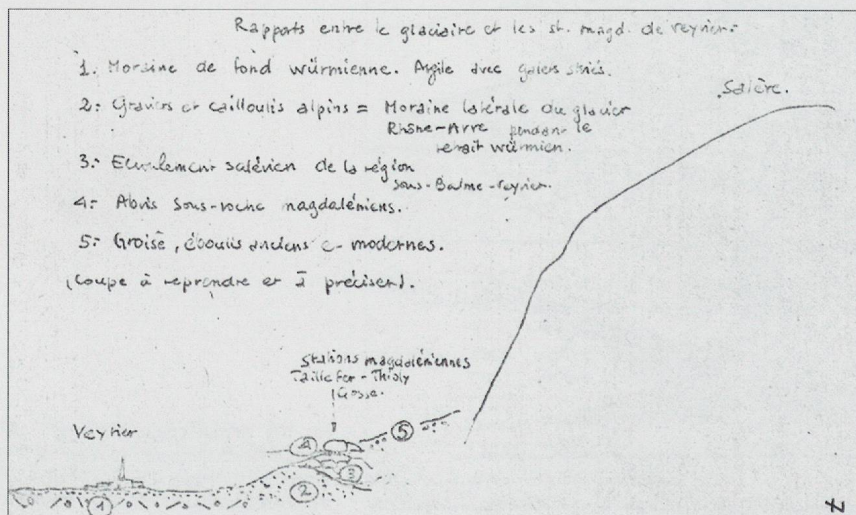 Rapports entre le glaciaire et les st. magd. de Veyrier:
1: Moraine de fond würmienne. Argile avec galets striés.
2: Graviers et cailloutis alpins = Moraine latérale du glacier
Rhône-Arve pendant le
retrait würmien.
3: Ecroulement salévien de la région
Sous-Balme-Veyrier.
4: Abris sous-roche magdaléniens.
5: Groise, éboulis anciens et modernes.
(Coupe à reprendre et à préciser).
Salève.
Stations magdaléniennes
Taillefer-Thioly
Gosse.
Veyrier
5
4
3
2
1
7